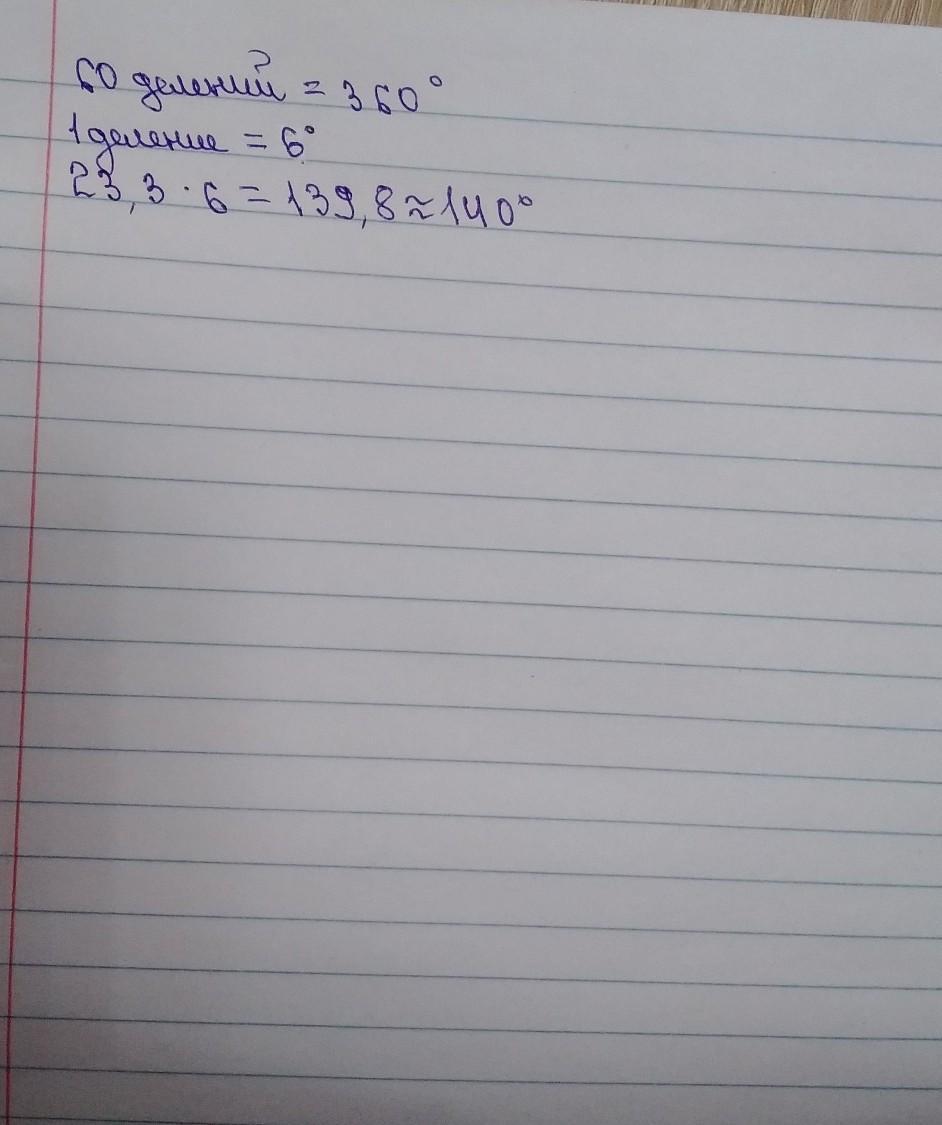 60 делений = 360°
1 деление = 6°
23,3 · 6 = 139,8 ≈ 140°